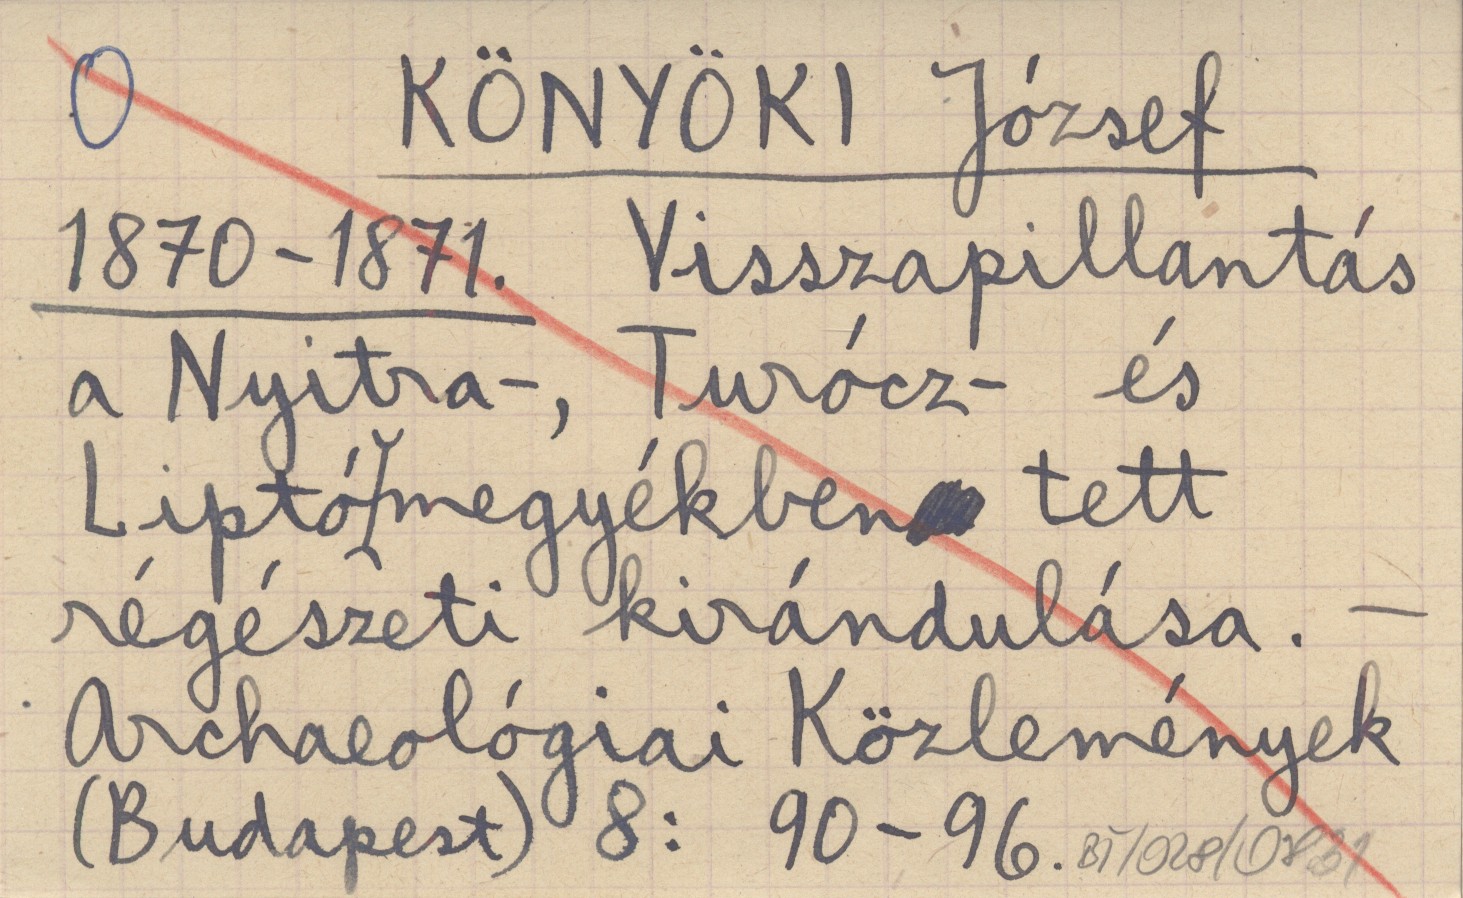 O KÖNYÖKI József
1870-1871. Visszapillantás
a Nyitra-, Turócz- és
Liptó megyékben tett
régészeti kirándulása. —
Archaeológiai Közlemények
(Budapest) 8: 90-96.